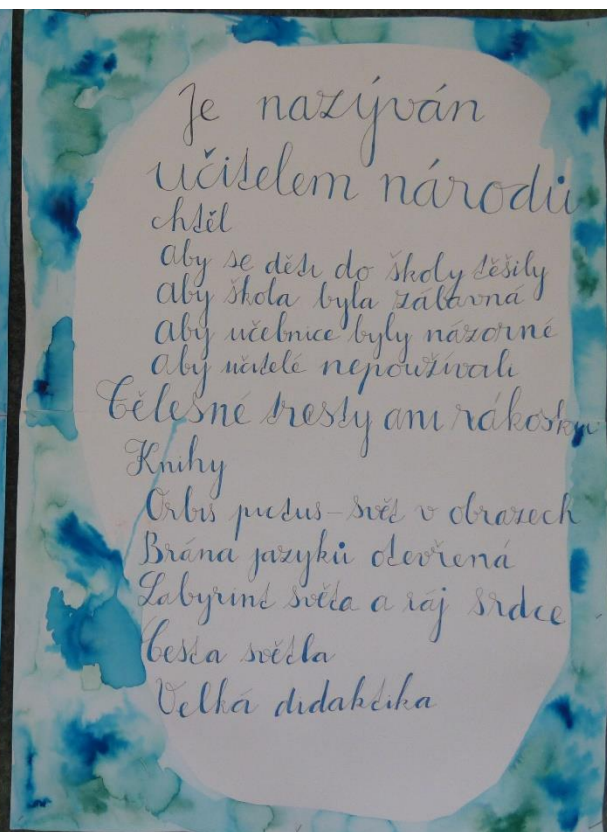 Je nazýván
učitelem národů
chtěl
aby se děti do školy těšily
aby škola byla zábavná
aby učebnice byly názorné
aby učitelé nepoužívali
tělesné tresty ani rákosku
Knihy
Orbis pictus - svět v obrazech
Brána jazyků otevřená
Labyrint světa a ráj srdce
Cesta světla
Velká didaktika